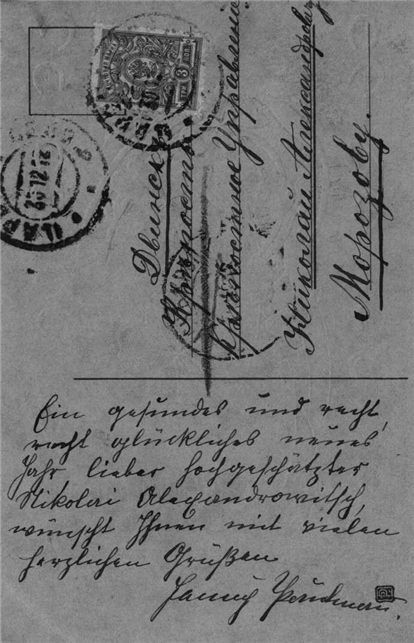 Двинскъ
Крѣпость
Крѣпостное Управленіе
Николаю Александр
Морозову.
3
25 12 12
Ein gesundes und recht,
recht glückliches neues
Jahr lieber hochgeschätzter
Nikolai Alexandrowitsch,
wünscht Ihnen mit vielen
herzlichen Grüßen
Fanny